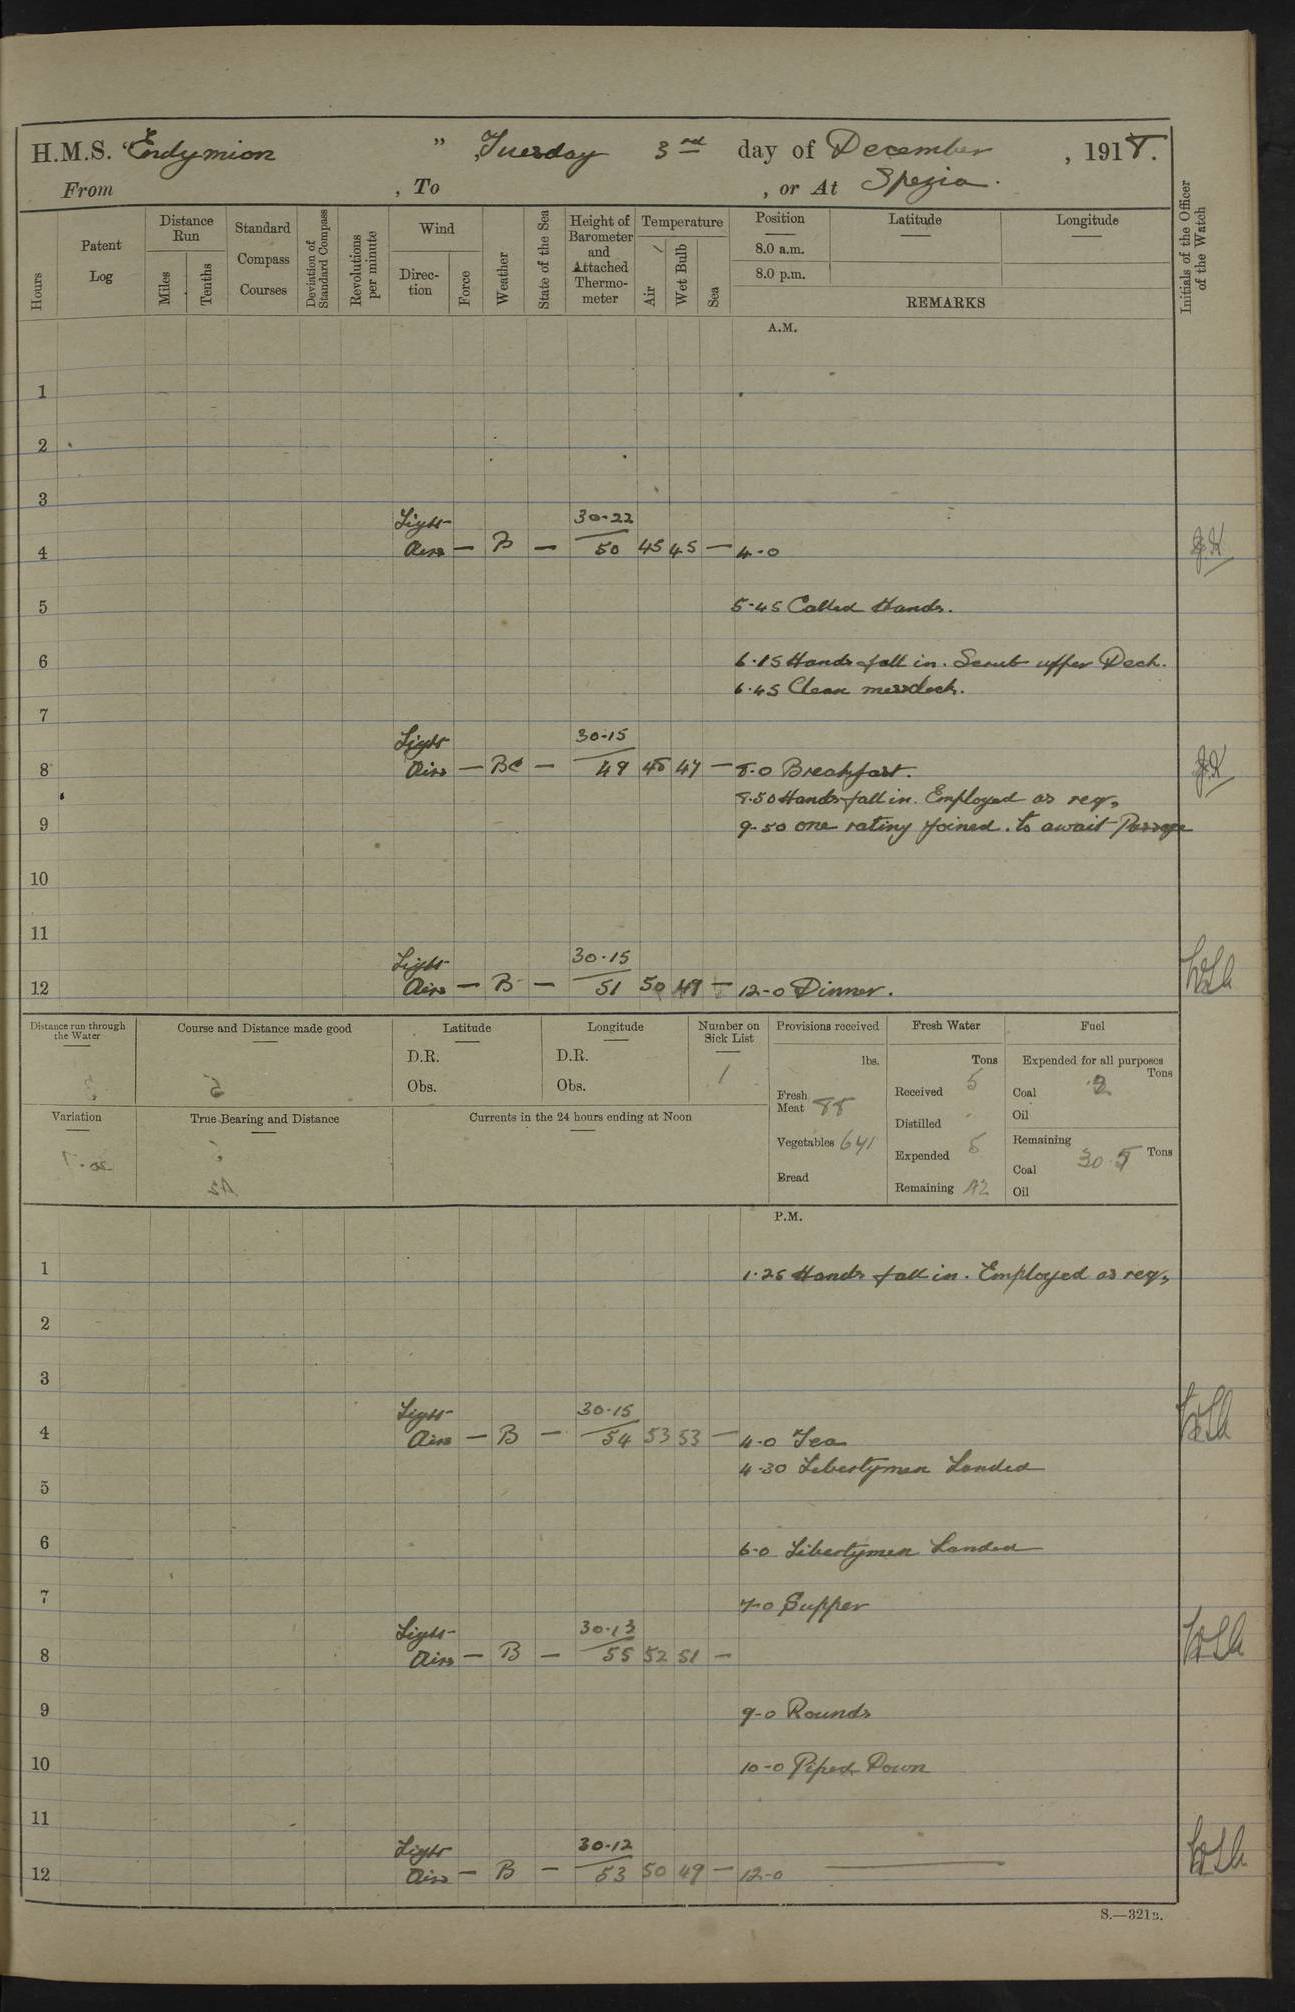 H.M.S. "Endymion ", Tuesday 3rd day of December, 1918.
From , To , or At Spezia.
Hours
Patent Log
Distance Run
Miles
Tenths
Standard Compass Courses
Deviation of Standard Compass
Revolutions per minute
Wind
Direction
Force
Weather
State of the Sea
Height of Barometer and Attached Thermometer
Temperature
Air
Wet Bulb
Sea
Position
8.0 a.m.
8.0 p.m.
Latitude
Longitude
REMARKS
Initials of the Officer of the Watch
A.M.
1
2
3
Light 30.22
4 Airs — B — 50 45 45 — 4.0
5 5.45 Called Hands.
6 6.15 Hands fall in. Scrub upper Deck.
6.45 Clean messdeck.
7
Light 30.15
8 Airs — BC — 49 48 47 — 8.0 Breakfast.
8.50 Hands fall in. Employed as req.
9 9.50 one rating joined. to await Passage
10
11
Light 30.15
12 Airs — B — 51 50 49 — 12.0 Dinner.
Distance run through the Water
Course and Distance made good
Latitude
D.R.
Obs.
Longitude
D.R.
Obs.
Number on Sick List
1
Provisions received
lbs.
Fresh Meat 88
Vegetables 641
Bread
Fresh Water
Tons
Received 5
Distilled
Expended 5
Remaining 42
Fuel
Expended for all purposes
Tons
Coal
Oil
Remaining
Tons
Coal
Oil
Variation
True Bearing and Distance
Currents in the 24 hours ending at Noon
P.M.
1 1.25 Hands fall in. Employed as req.
2
3
Light 30.15
4 Airs — B — 54 53 53 — 4.0 Tea
4.30 Libertymen Landed
5
6 6.0 Libertymen Landed
7 7.0 Supper
Light 30.13
8 Airs — B — 55 52 51 —
9 9.0 Rounds
10 10.0 Piped Down
11
Light 30.12
12 Airs — B — 53 50 49 — 12.0 —
S.—321B.